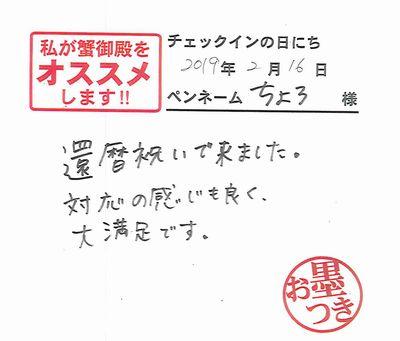 私が蟹御殿を
オススメ
します!!
チェックインの日にち
2019年 2月 16日
ペンネーム ちょろ 様
還暦祝いで来ました。
対応の感じも良く、
大満足です。
お墨つき